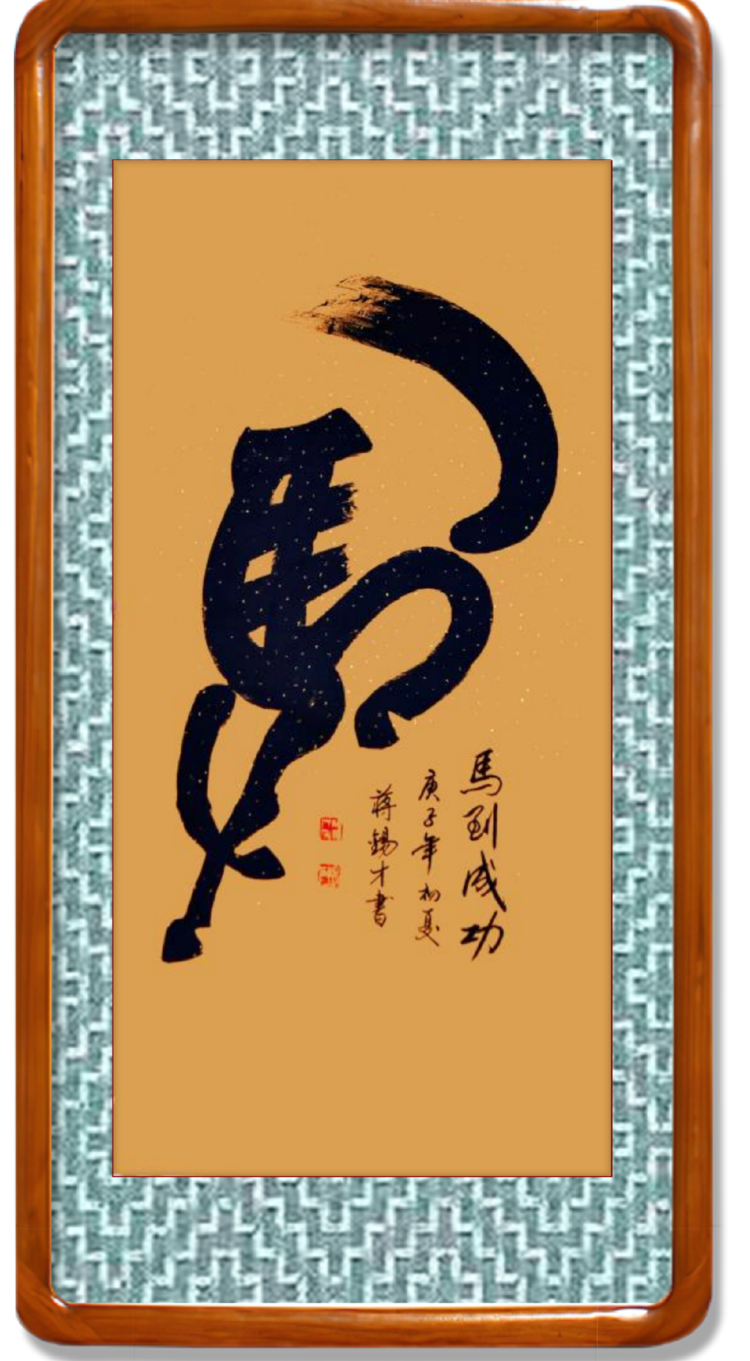 馬
馬到成功
庚子年初夏
蔣錫才書